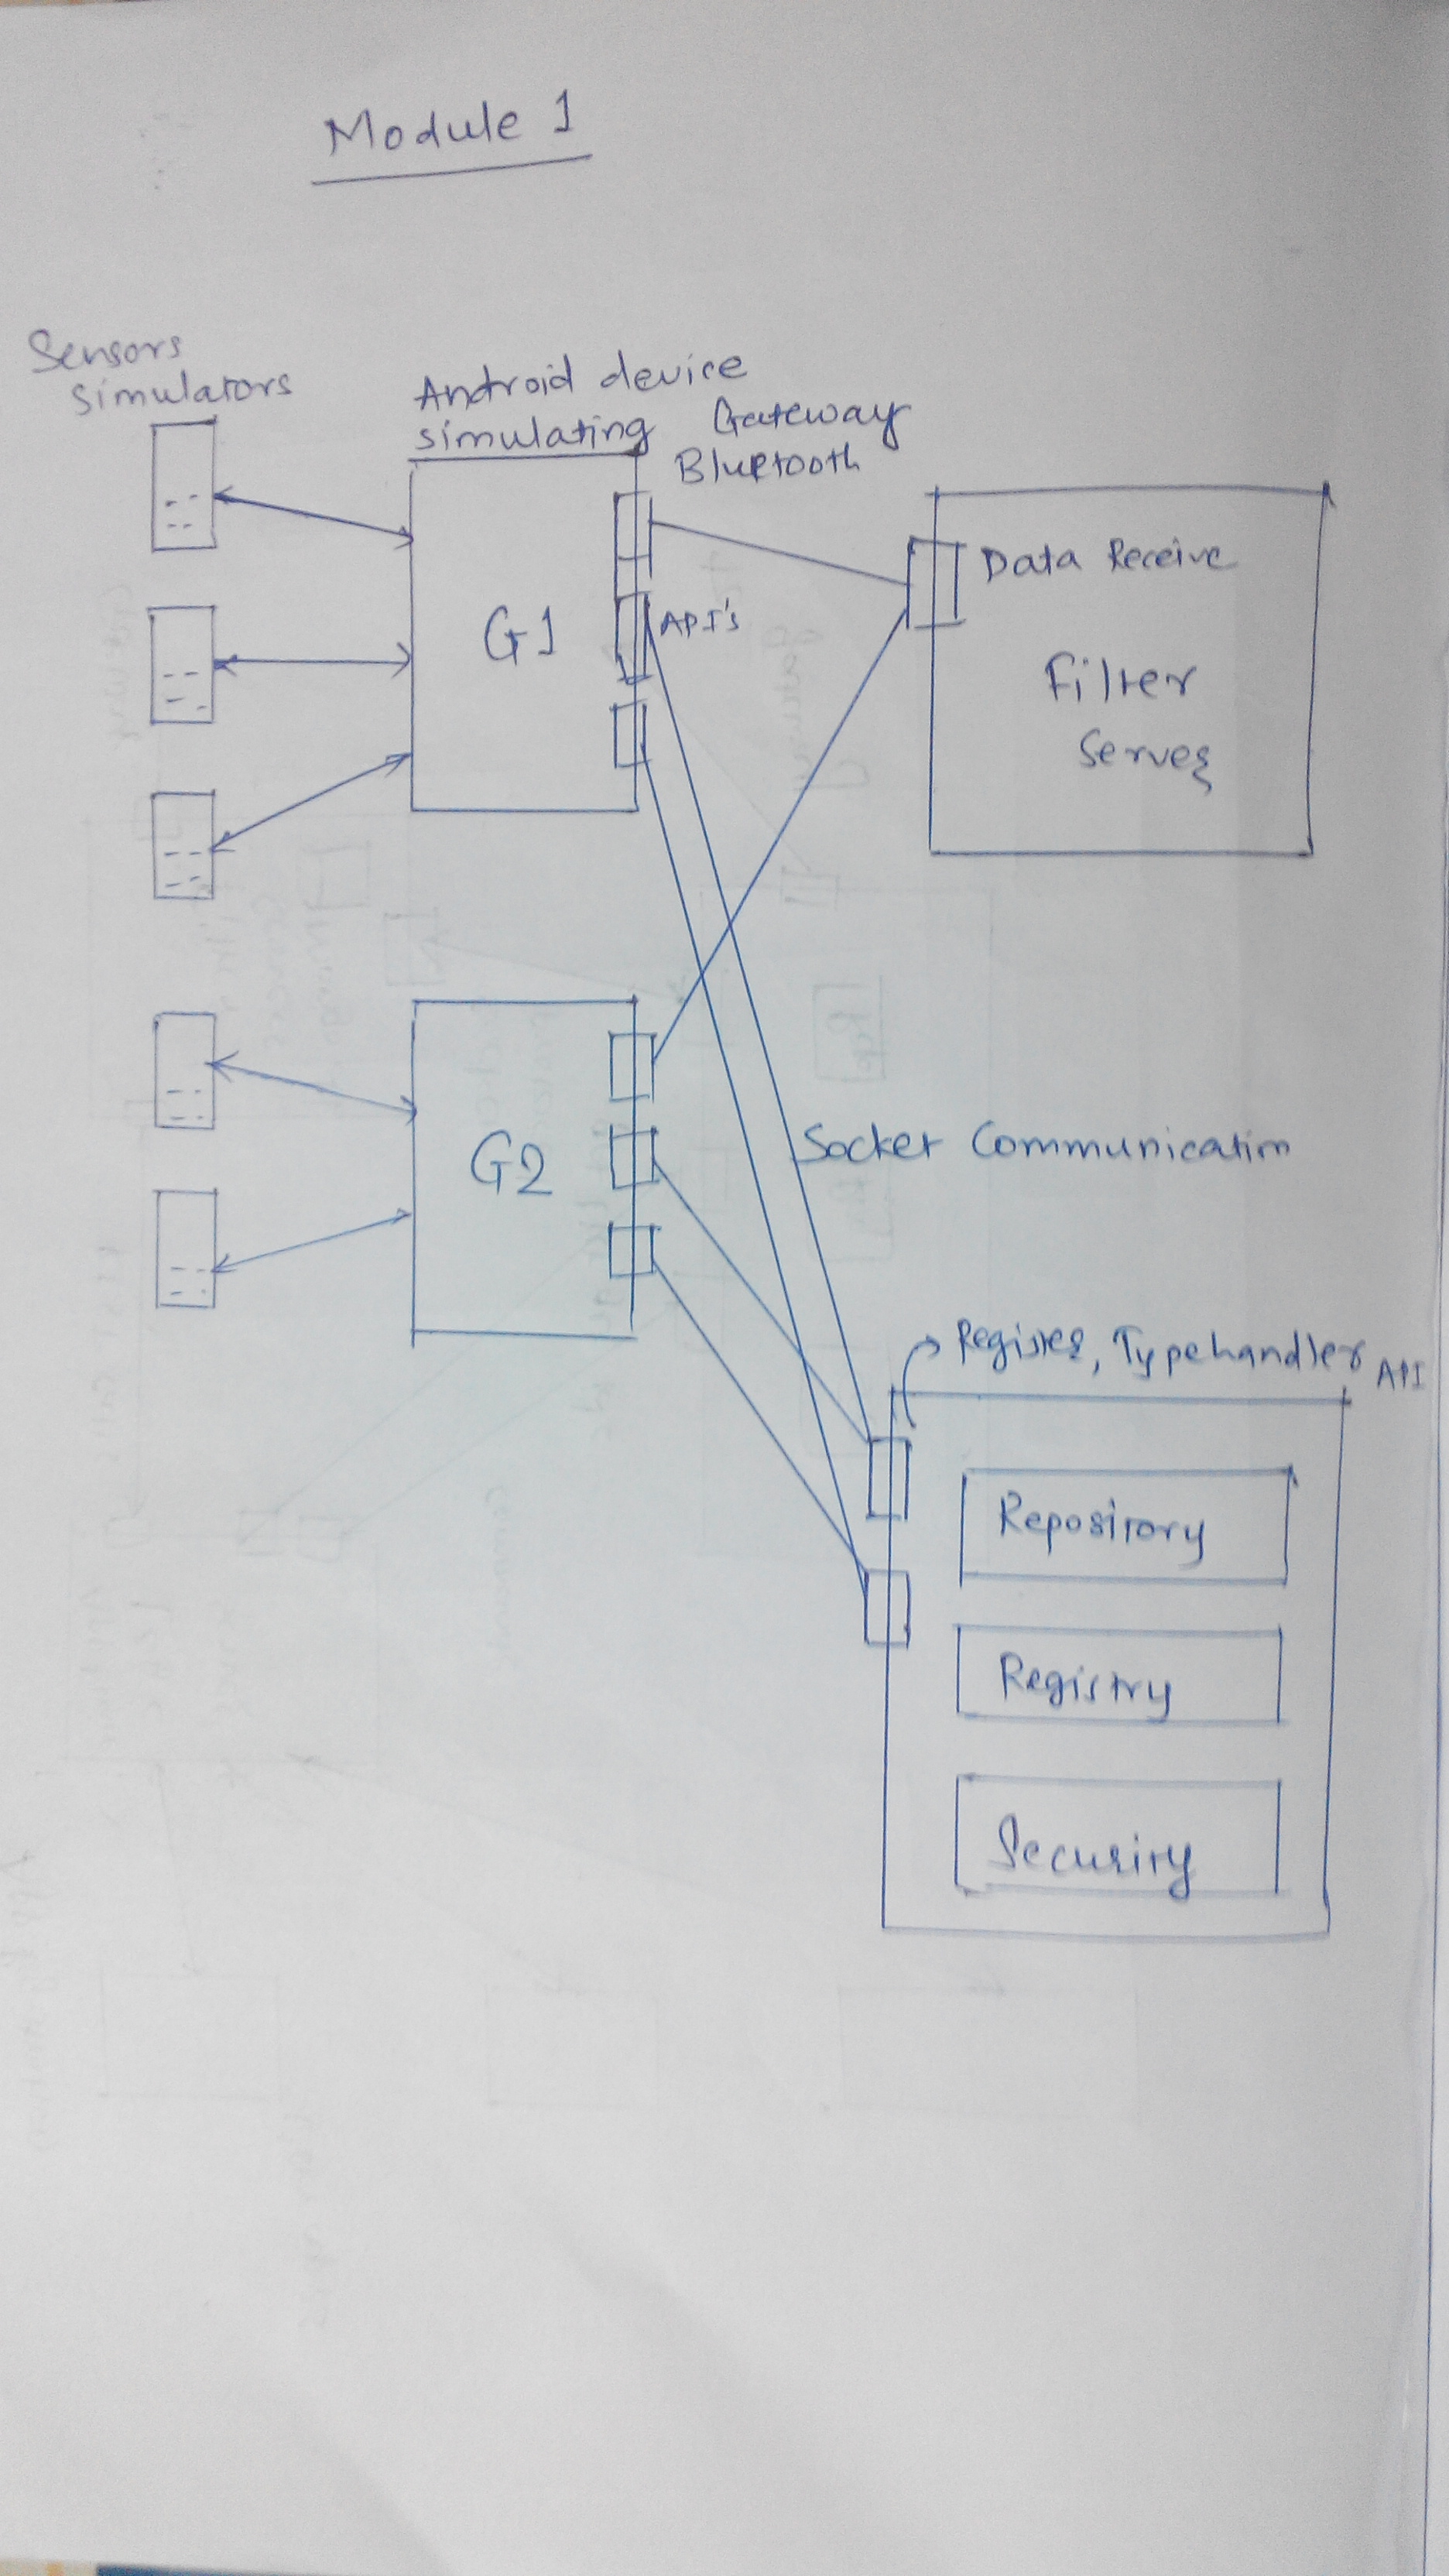 Module 1
Sensors
Simulators
Android device
simulating Gateway
Bluetooth
G1
API's
Data Receive
Filter
Server
G2
Socket Communication
Register, Typehandler API
Repository
Registry
Security